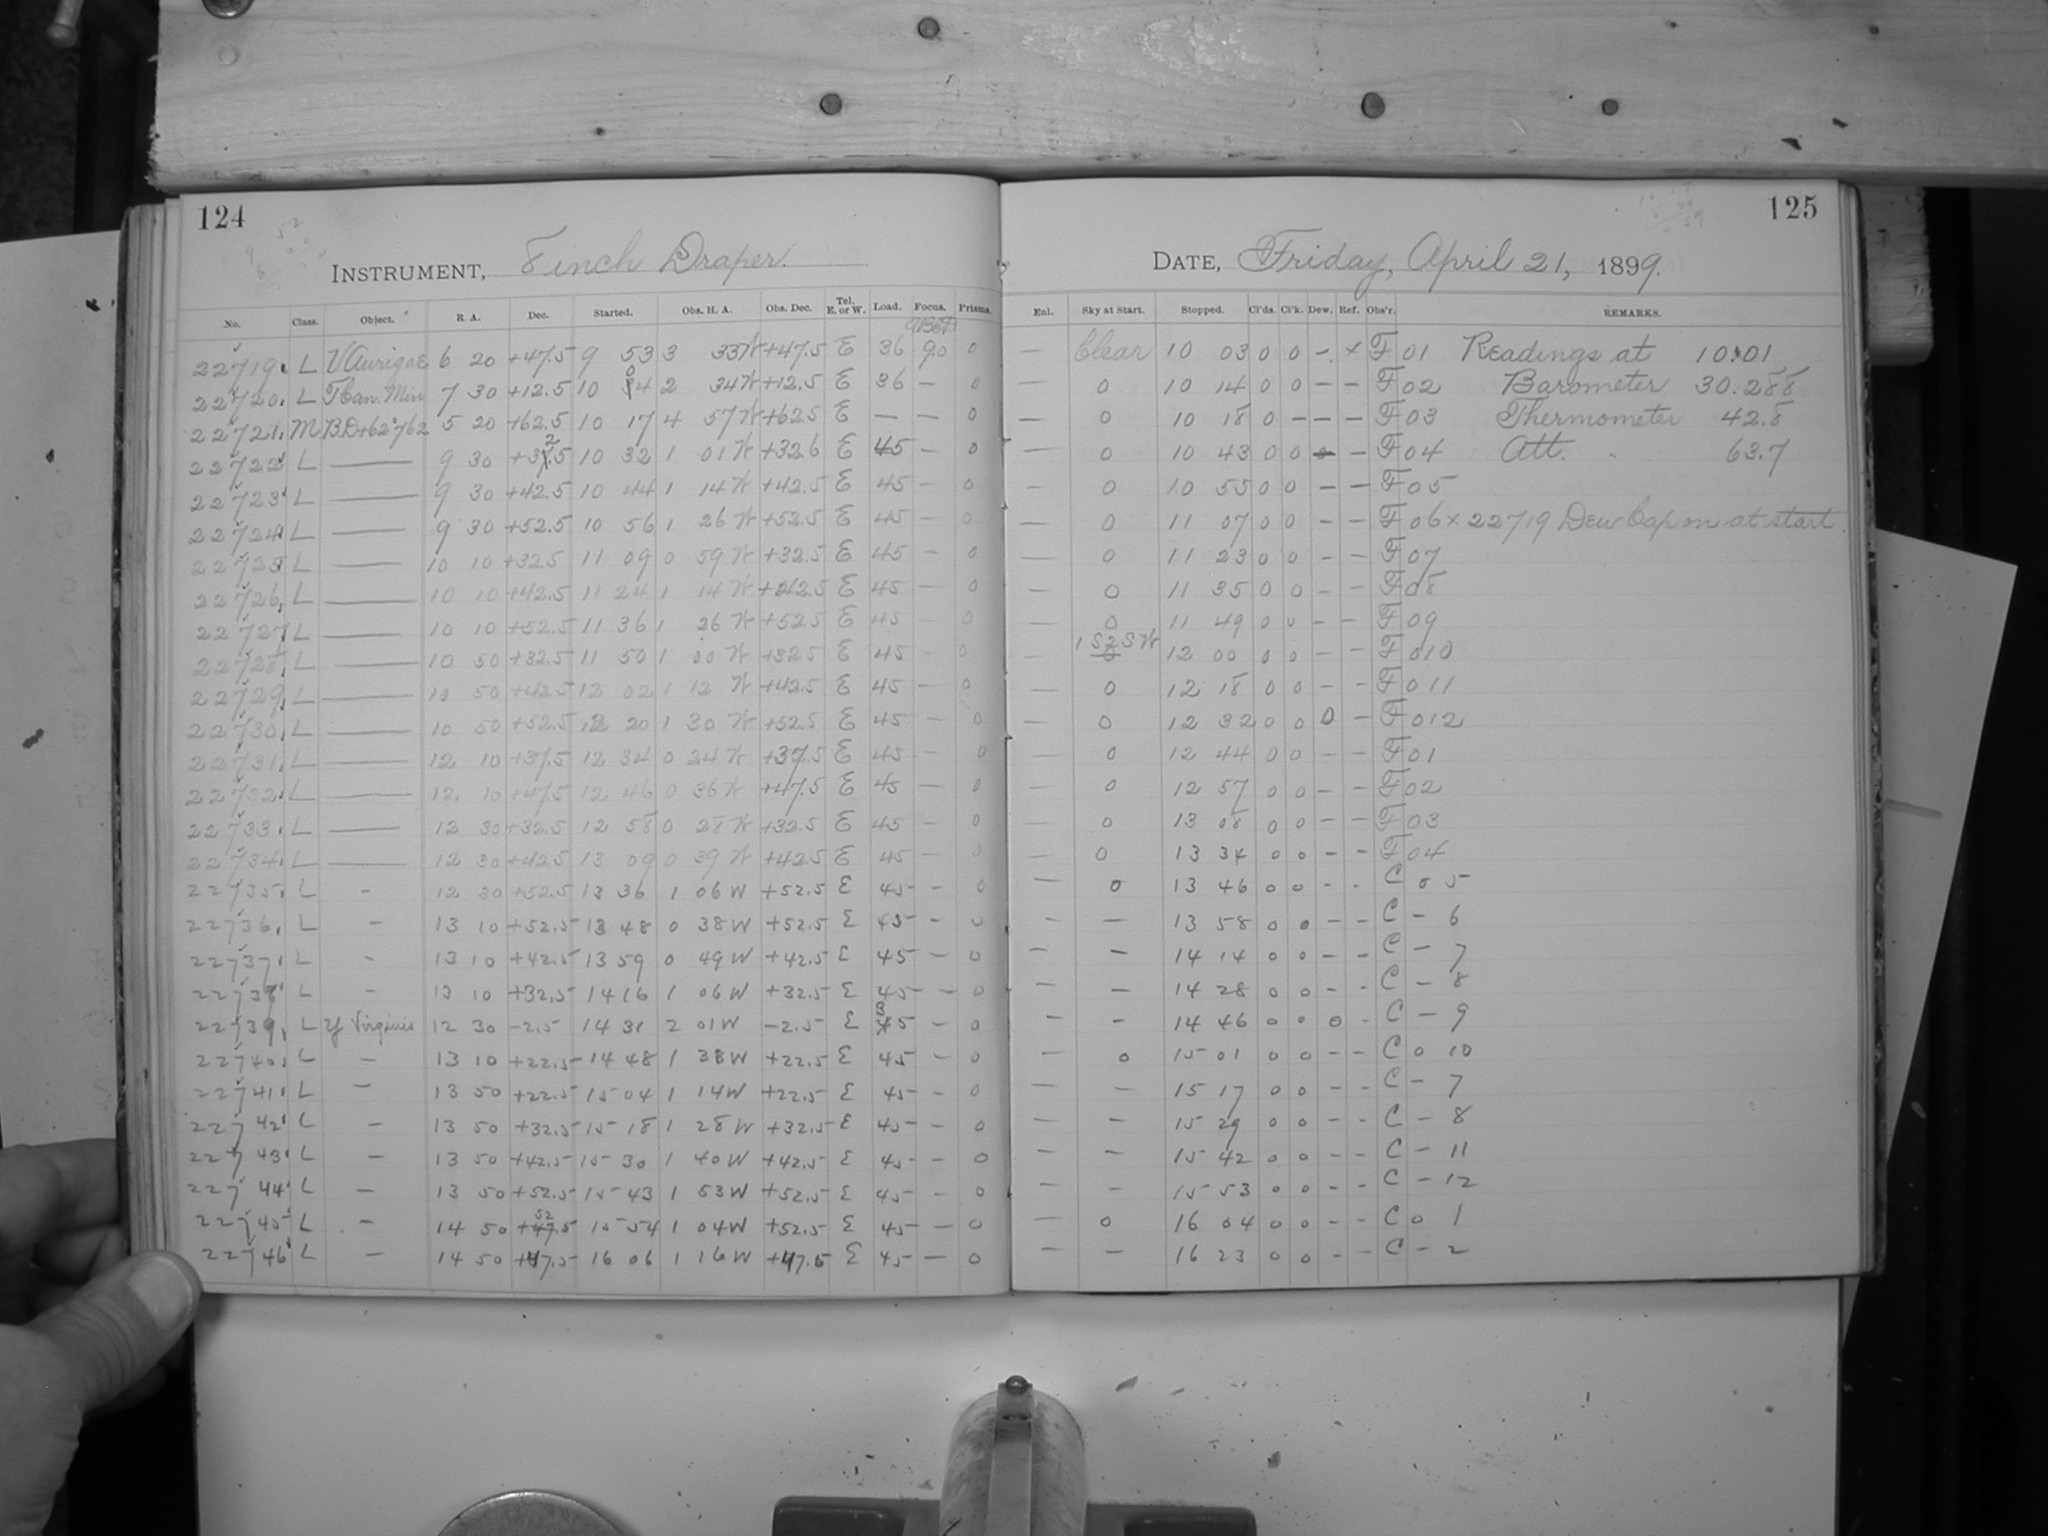 124
INSTRUMENT, 8 inch Draper.
No. Class. Object. R. A. Dec. Started. Obs. H. A. Obs. Dec. Tel. E. or W. Load. Focus. Prisms.
22719. L V Aurigae 6 20 +47.5 9 53 3 33 W +47.5 E 36 9.0 0
22720. L T Can. Min 7 30 +12.5 10 04 2 34 W +12.5 E 36 – 0
22721. M BD+62°762 5 20 +62.5 10 17 4 57 W +62.5 E — — 0
22722 L — 9 30 +32.5 10 32 1 01 W +32.6 E 45 – 0
22723 L — 9 30 +42.5 10 44 1 14 W +42.5 E 45 – 0
22724 L — 9 30 +52.5 10 56 1 26 W +52.5 E 45 – 0
22725 L — 10 10 +32.5 11 09 0 59 W +32.5 E 45 – 0
22726. L — 10 10 +42.5 11 24 1 14 W +42.5 E 45 – 0
22727 L — 10 10 +52.5 11 36 1 26 W +52.5 E 45 – 0
22728. L — 10 50 +32.5 11 50 1 00 W +32.5 E 45 – 0
22729. L — 10 50 +42.5 12 02 1 12 W +42.5 E 45 – 0
22730. L — 10 50 +52.5 12 20 1 30 W +52.5 E 45 – 0
22731. L — 12 10 +37.5 12 34 0 24 W +37.5 E 45 – 0
22732. L — 12 10 +47.5 12 46 0 36 W +47.5 E 45 – 0
22733. L — 12 30 +32.5 12 58 0 28 W +32.5 E 45 – 0
22734. L — 12 30 +42.5 13 09 0 39 W +42.5 E 45 – 0
22735. L - 12 30 +52.5 13 36 1 06 W +52.5 E 45 – 0
22736. L - 13 10 +52.5 13 48 0 38 W +52.5 E 45 – 0
22737. L - 13 10 +42.5 13 59 0 49 W +42.5 E 45 – 0
22738 L - 13 10 +32.5 14 16 1 06 W +32.5 E 45 – 0
22739. L Y Virginis 12 30 -2.5 14 31 2 01 W -2.5 E 35 – 0
22740. L - 13 10 +22.5 14 48 1 38 W +22.5 E 45 – 0
22741. L - 13 50 +22.5 15 04 1 14 W +22.5 E 45 – 0
22742 L - 13 50 +32.5 15 18 1 28 W +32.5 E 45 – 0
22743. L - 13 50 +42.5 15 30 1 40 W +42.5 E 45 – 0
22744 L - 13 50 +52.5 15 43 1 53 W +52.5 E 45 – 0
22745 L - 14 50 +52.5 15 54 1 04 W +52.5 E 45 – 0
22746 L - 14 50 +47.5 16 06 1 16 W +47.5 E 45 – 0
125
DATE, Friday, April 21, 1899.
Enl. Sky at Start. Stopped. Cl'ds. Cl'k. Dew. Ref. Obs'r. REMARKS.
— Clear 10 03 0 0 – x F 01 Readings at 10:01
— 0 10 14 0 0 – – F 02 Barometer 30.288
— 0 10 18 0 – – – F 03 Thermometer 42.8
— 0 10 43 0 0 – – F 04 Att. " 63.7
— 0 10 55 0 0 – – F 05
— 0 11 07 0 0 – – F 06 x 22719 Dew Cap on at start.
— 0 11 23 0 0 – – F 07
— 0 11 35 0 0 – – F 08
— 0 11 49 0 0 – – F 09
— 1 S2SW 12 00 0 0 – – F 010
— 0 12 18 0 0 – – F 011
— 0 12 32 0 0 0 – F 012
— 0 12 44 0 0 – – F 01
— 0 12 57 0 0 – – F 02
— 0 13 08 0 0 – – F 03
— 0 13 34 0 0 – – F 04
— 0 13 46 0 0 - - C 0 5
— – 13 58 0 0 – – C – 6
— – 14 14 0 0 – – C – 7
— – 14 28 0 0 – – C – 8
— – 14 46 0 0 0 - C – 9
— 0 15 01 0 0 – – C 0 10
— – 15 17 0 0 – – C – 7
— – 15 29 0 0 – – C – 8
— – 15 42 0 0 – – C – 11
— – 15 53 0 0 – – C – 12
— 0 16 04 0 0 – – C 0 1
— – 16 23 0 0 – – C – 2